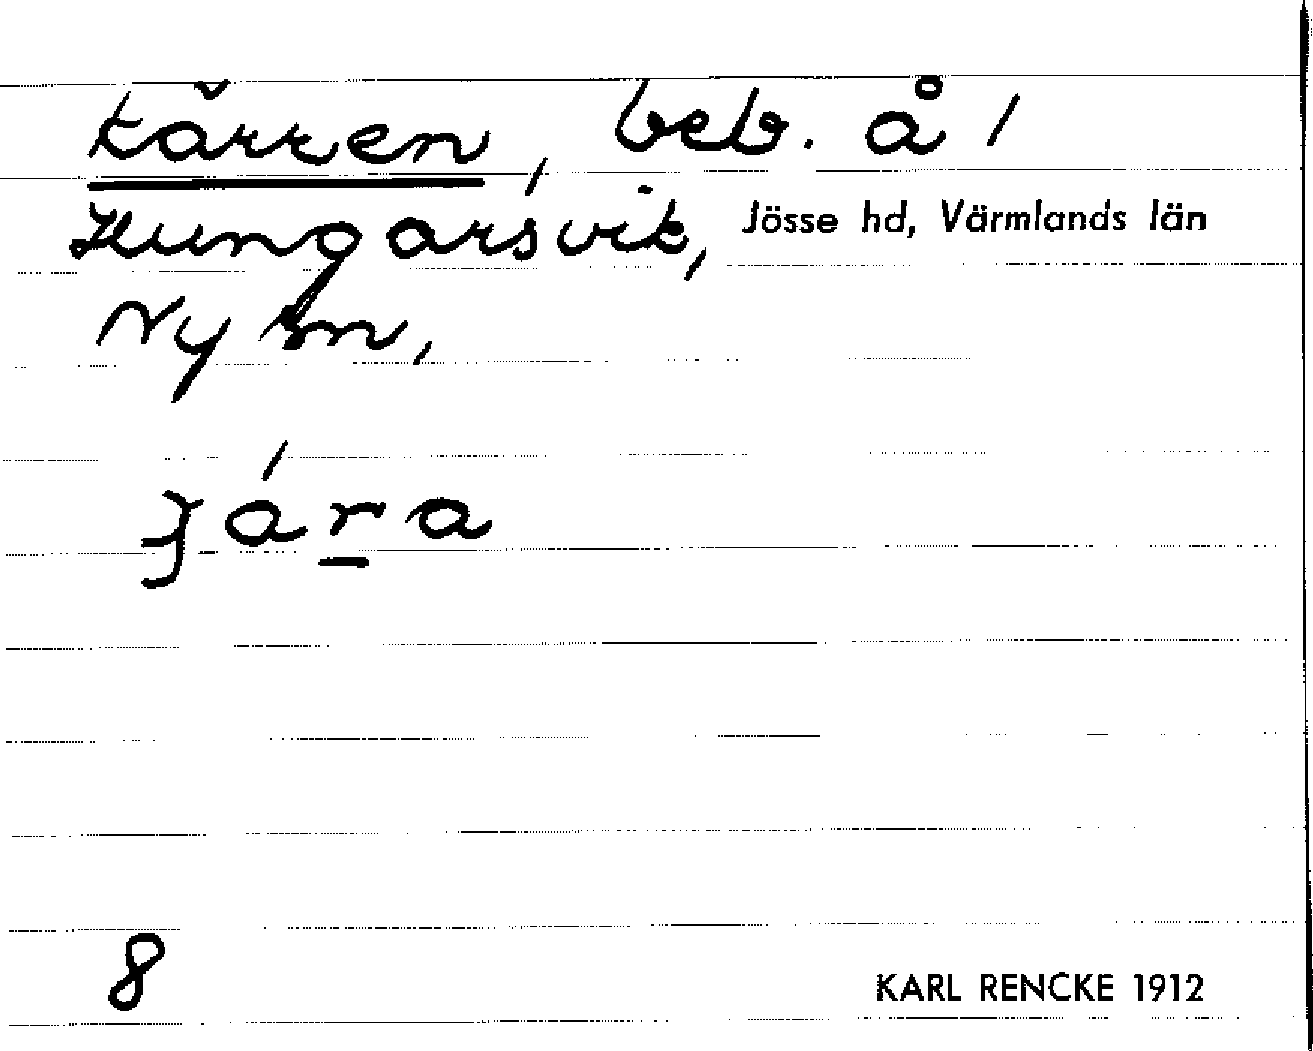 Kärren, beb. å 1
Kungarsvik, Jösse hd, Värmlands län
Ny sn,
ȷára
8
KARL RENCKE 1912